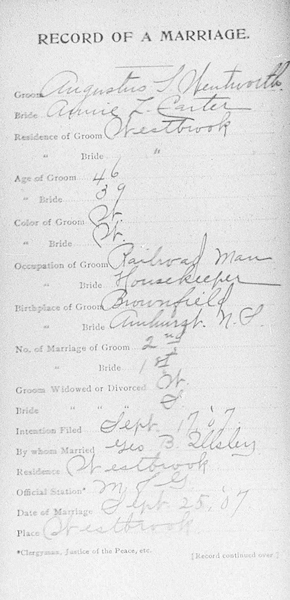 RECORD OF A MARRIAGE.
Groom Augustus S Wentworth.
Bride Annie L. Carter
Residence of Groom Westbrook
" Bride "
Age of Groom 46
" Bride 39
Color of Groom W.
" Bride W.
Occupation of Groom Railroad Man
" Bride Housekeeper
Birthplace of Groom Brownfield
" Bride Amhurst. N.S.
No. of Marriage of Groom 2nd
" Bride 1st
Groom Widowed or Divorced W.
Bride " " " S
Intention Filed Sept. 17 '07
By whom Married Geo. B. Illsley
Residence Westbrook
Official Station* M of G.
Date of Marriage Sept. 25, '07
Place Westbrook
*Clergyman, Justice of the Peace, etc. [Record continued over.]